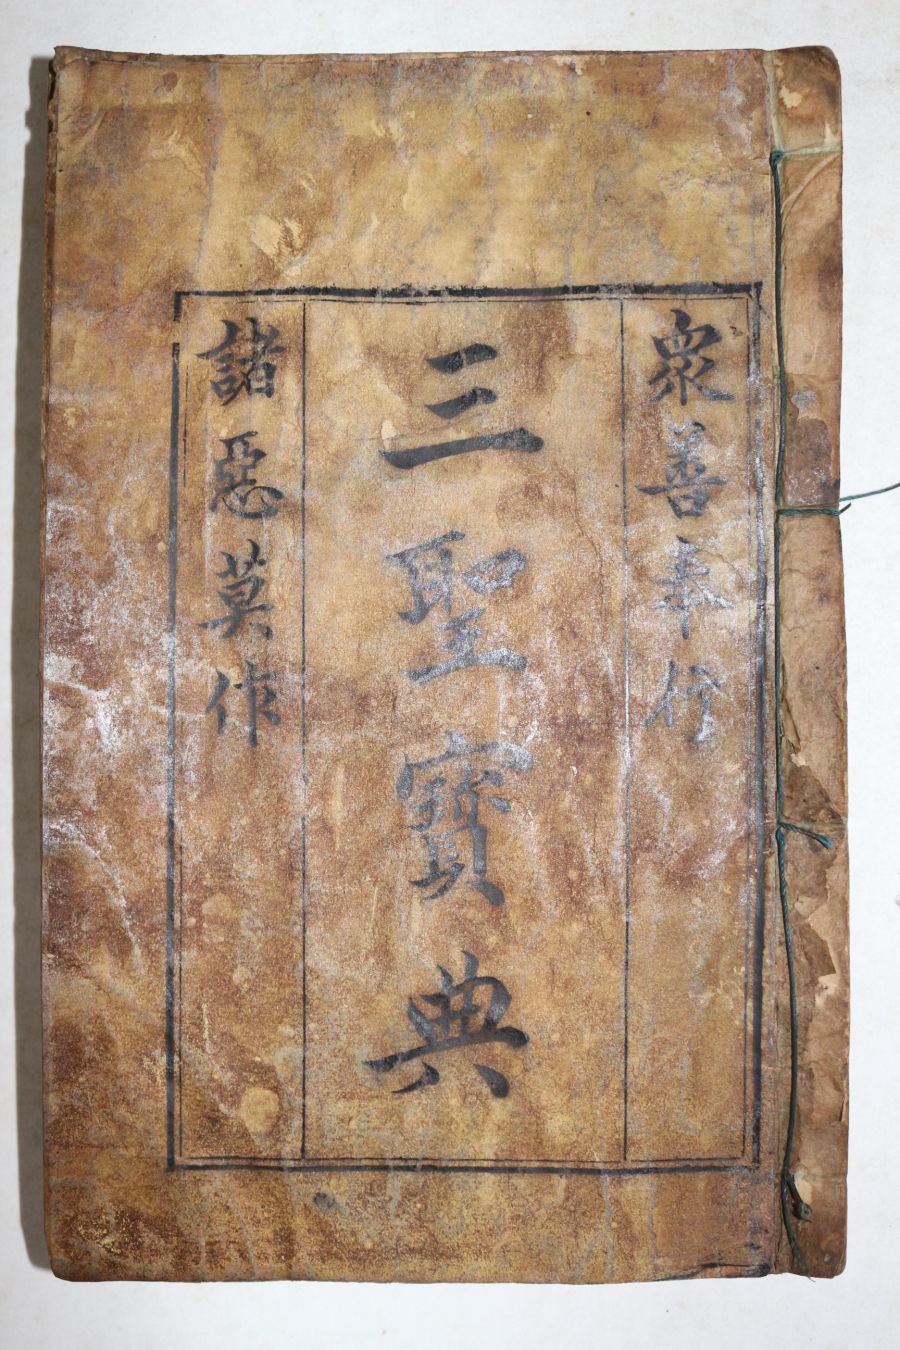 衆善奉行
三聖寶典
諸惡莫作